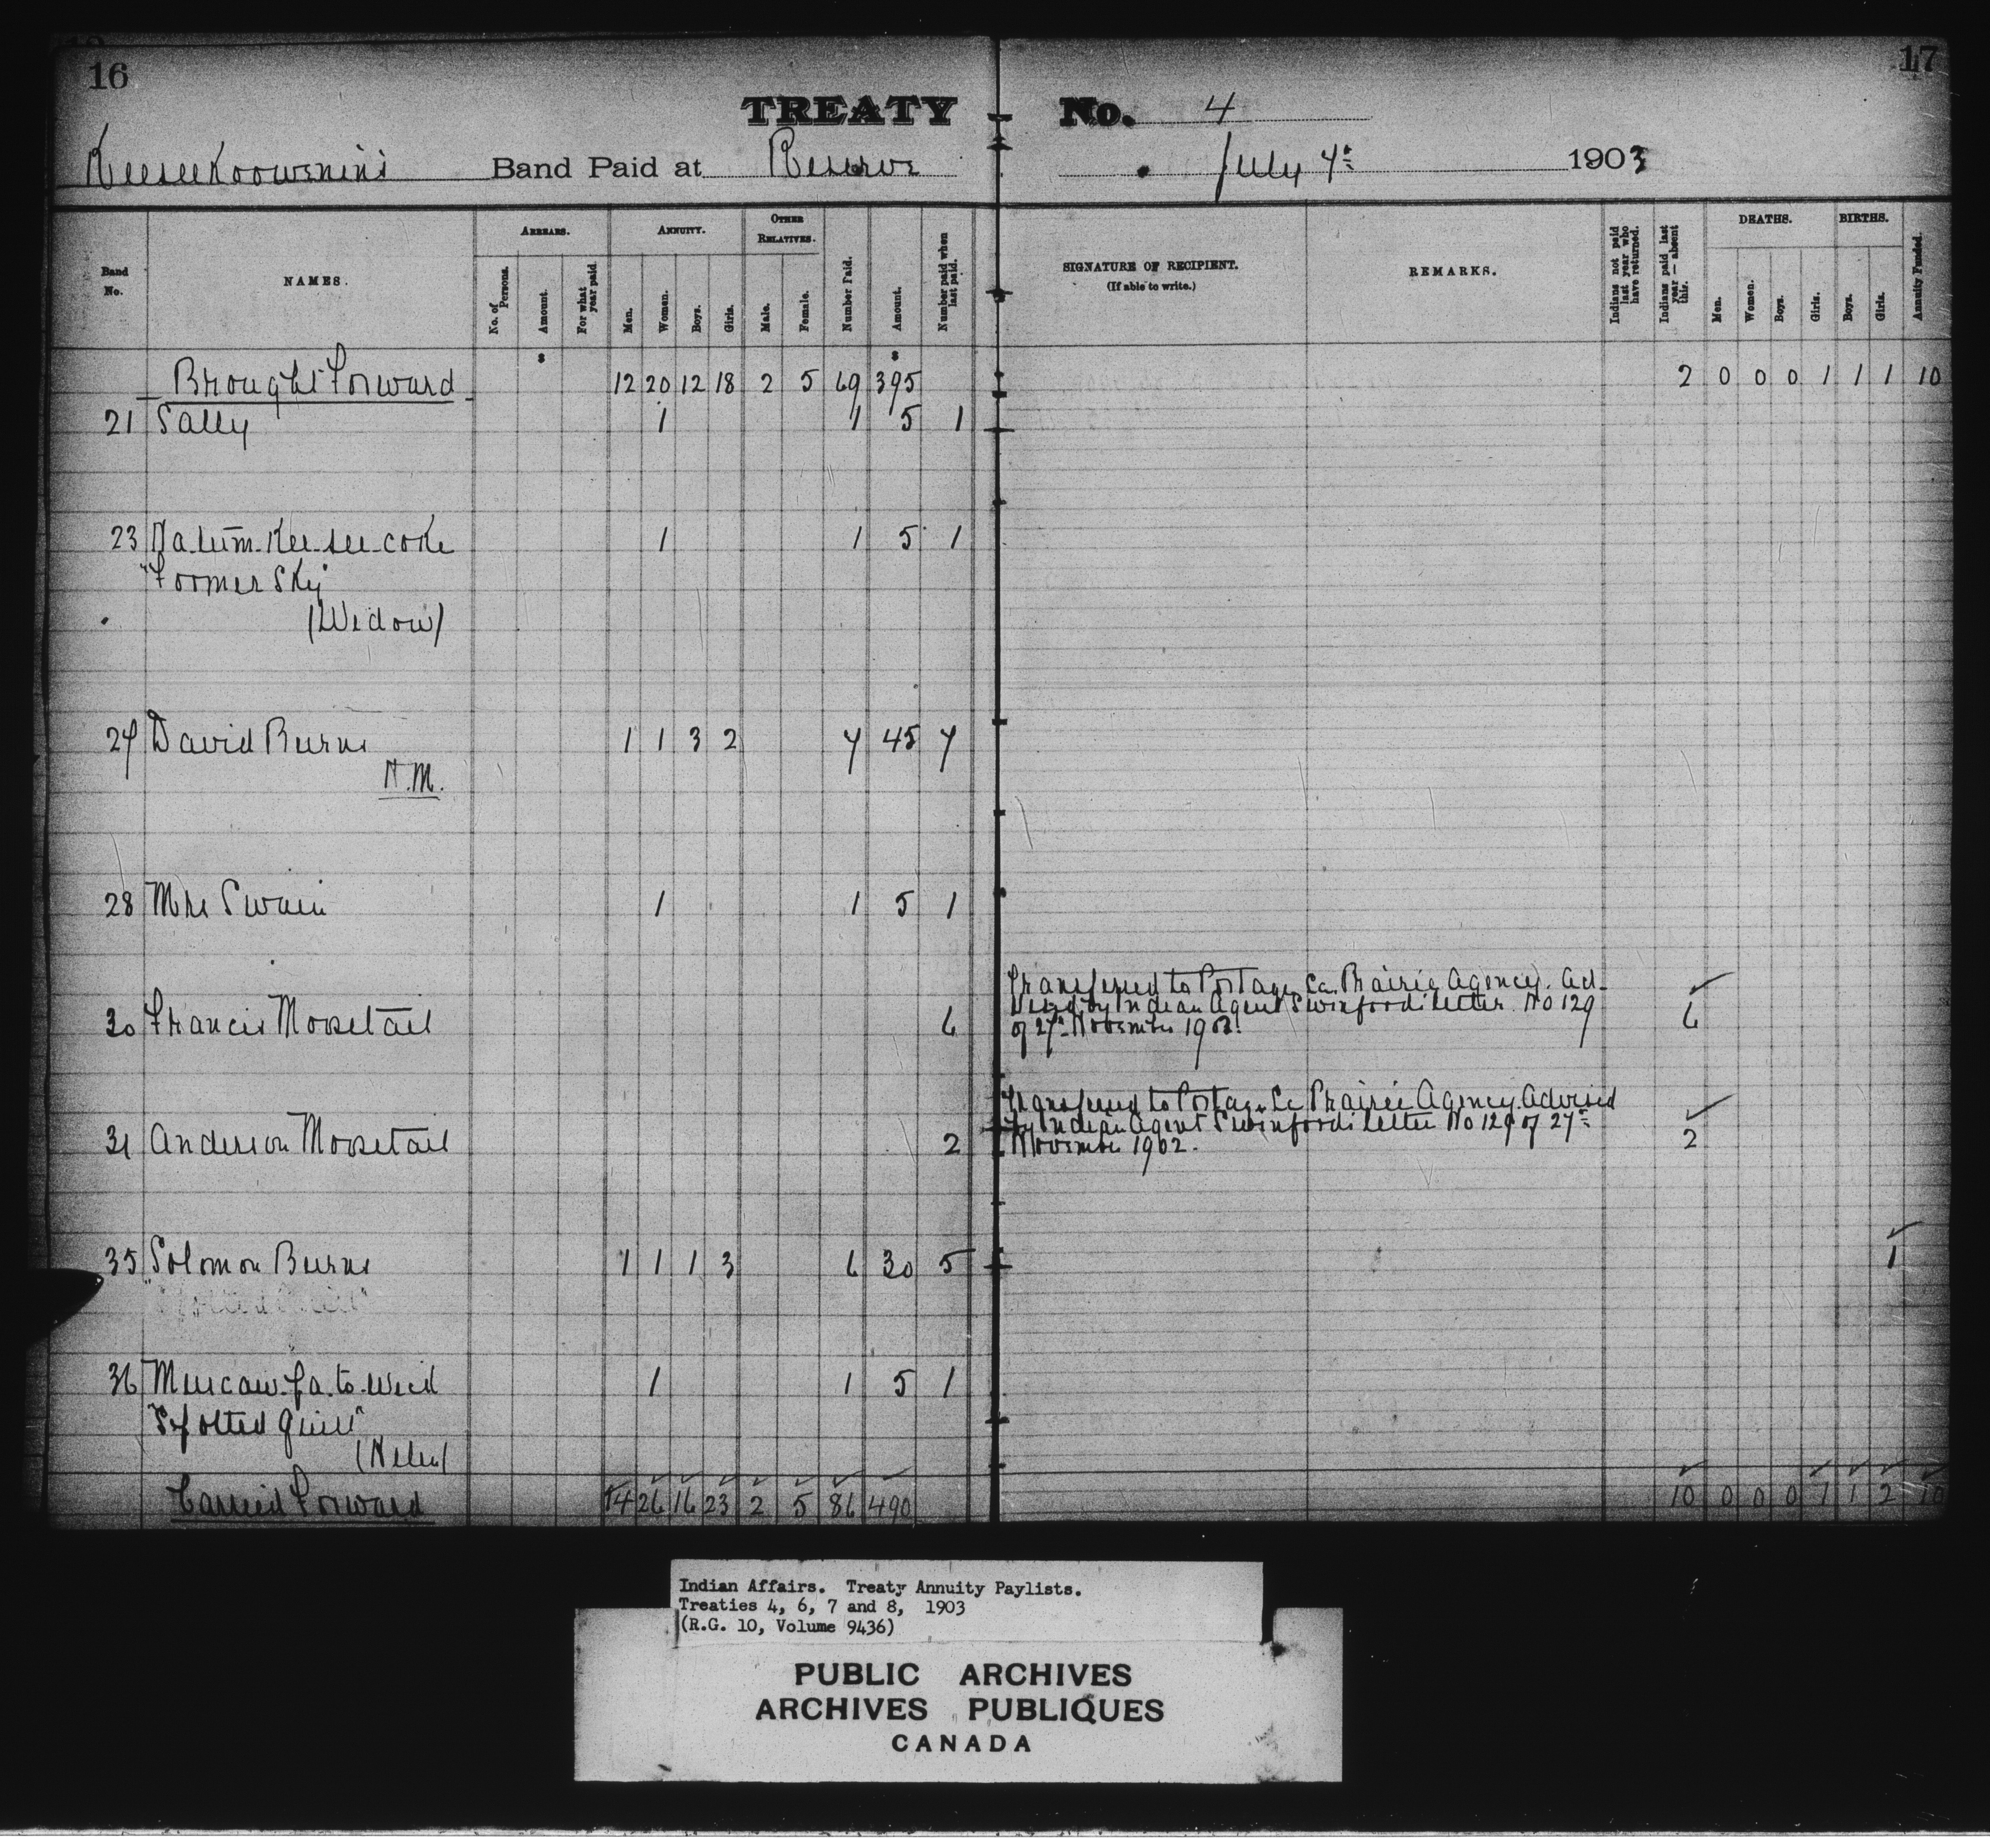 16
17
TREATY No. 4
Keeseekoowenin's Band Paid at Reserve July 7th 1903
Band No.
NAMES.
ARREARS.
No. of Persons.
Amount.
For what year paid.
ANNUITY.
Men.
Women.
Boys.
Girls.
OTHER RELATIVES.
Male.
Female.
Number Paid.
Amount.
Number paid when last paid.
SIGNATURE OF RECIPIENT.
(If able to write.)
REMARKS.
Indians not paid last year who have returned.
Indians paid last year — absent this.
DEATHS.
Men.
Women.
Boys.
Girls.
BIRTHS.
Boys.
Girls.
Annuity Funded.
$ $
Brought Forward 12 20 12 18 2 5 69 395 2 0 0 0 1 1 1 10
21 Sally 1 1 5 1
23 1 1 5 1
(Widow)
27 David Burns 1 1 3 2 7 45 7
H.M.
28 Mrs Swain 1 1 5 1
30 Francis Moosetail 6 Transferred to Portage La Prairie Agency. Ad-
vised by Indian Agent Swinford's letter No 129
of 27th November 1902. 6
31 Anderson Moosetail 2 Transferred to Portage La Prairie Agency. Advised
by Indian Agent Swinford's letter No 129 of 27th
November 1902. 2
35 Solomon Burns 1 1 1 3 6 30 5 1
36 1 1 5 1
"Spotted Quill"
(Helen)
Carried Forward 14 26 16 23 2 5 86 490 10 0 0 0 1 1 2 10
Indian Affairs. Treaty Annuity Paylists.
Treaties 4, 6, 7 and 8, 1903
(R.G. 10, Volume 9436)
PUBLIC ARCHIVES
ARCHIVES PUBLIQUES
CANADA